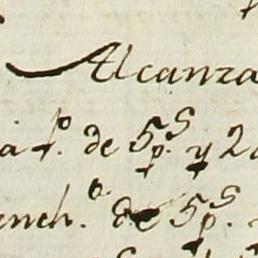 Alcanza
a fº. de 5p.s y 2
ench.o de 5p.s